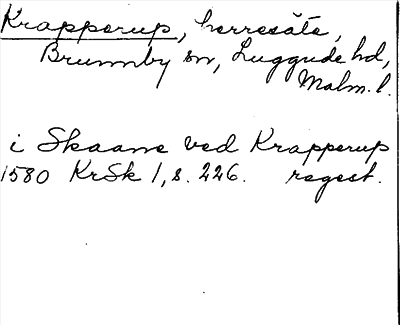 Krapperup, herresäte,
Brunnby sn, Luggude hd,
Malm. l.
i Skaane ved Krapperup
1580 KrSk 1, s. 226. regest.